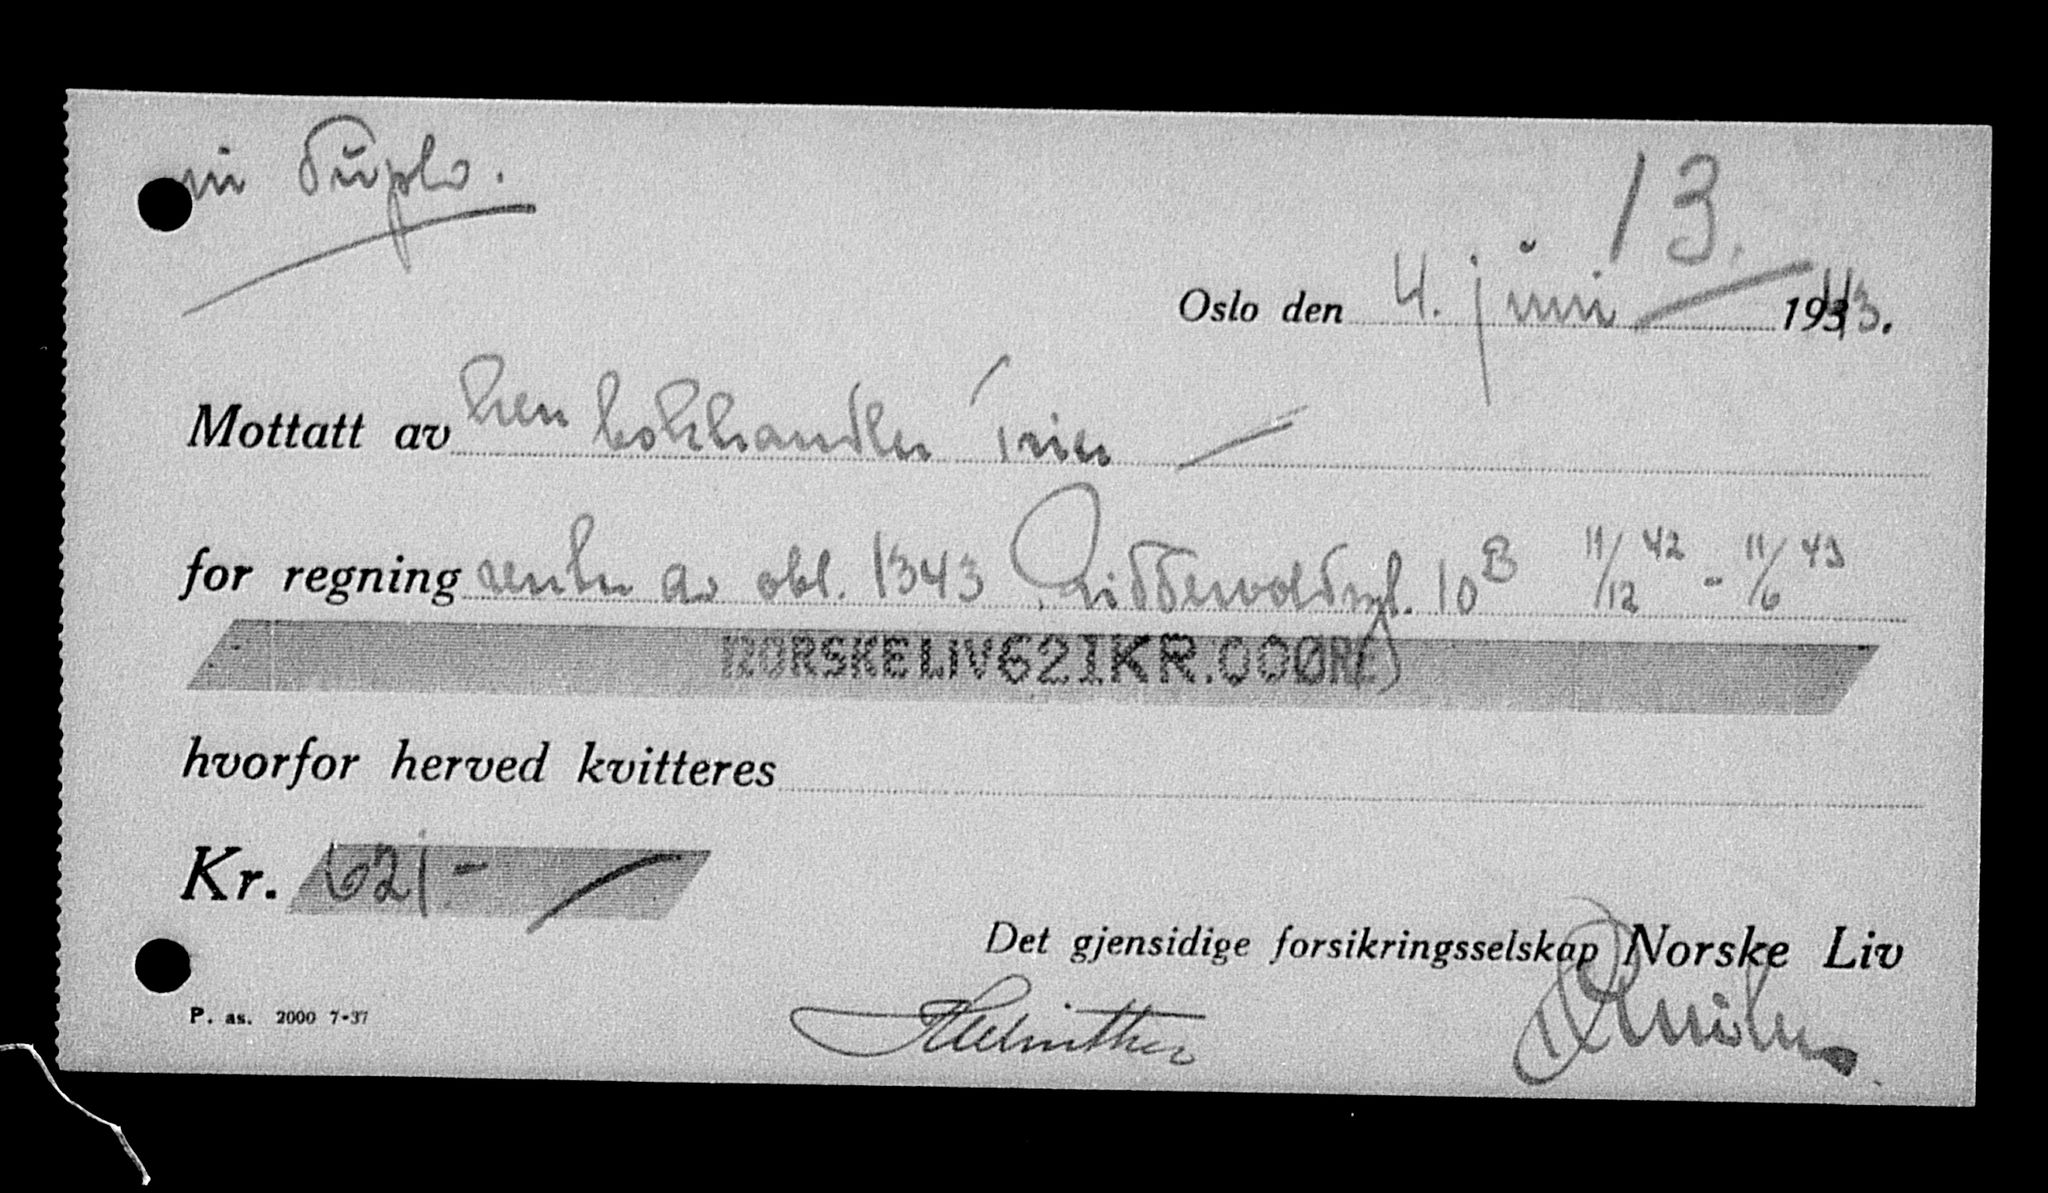 in duplo.
13.
Oslo den 4. juni 1943.
Mottatt av herr bokhandler Trier
for regning renter av obl. 1343 (Riddervoldsgt. 10B 11/12 42 - 11/6 43
NORSKE LIV 621 KR. 00 ØRE)
hvorfor herved kvitteres
Kr. 621 -
Det gjensidige forsikringsselskap Norske Liv
P. as. 2000 7-37